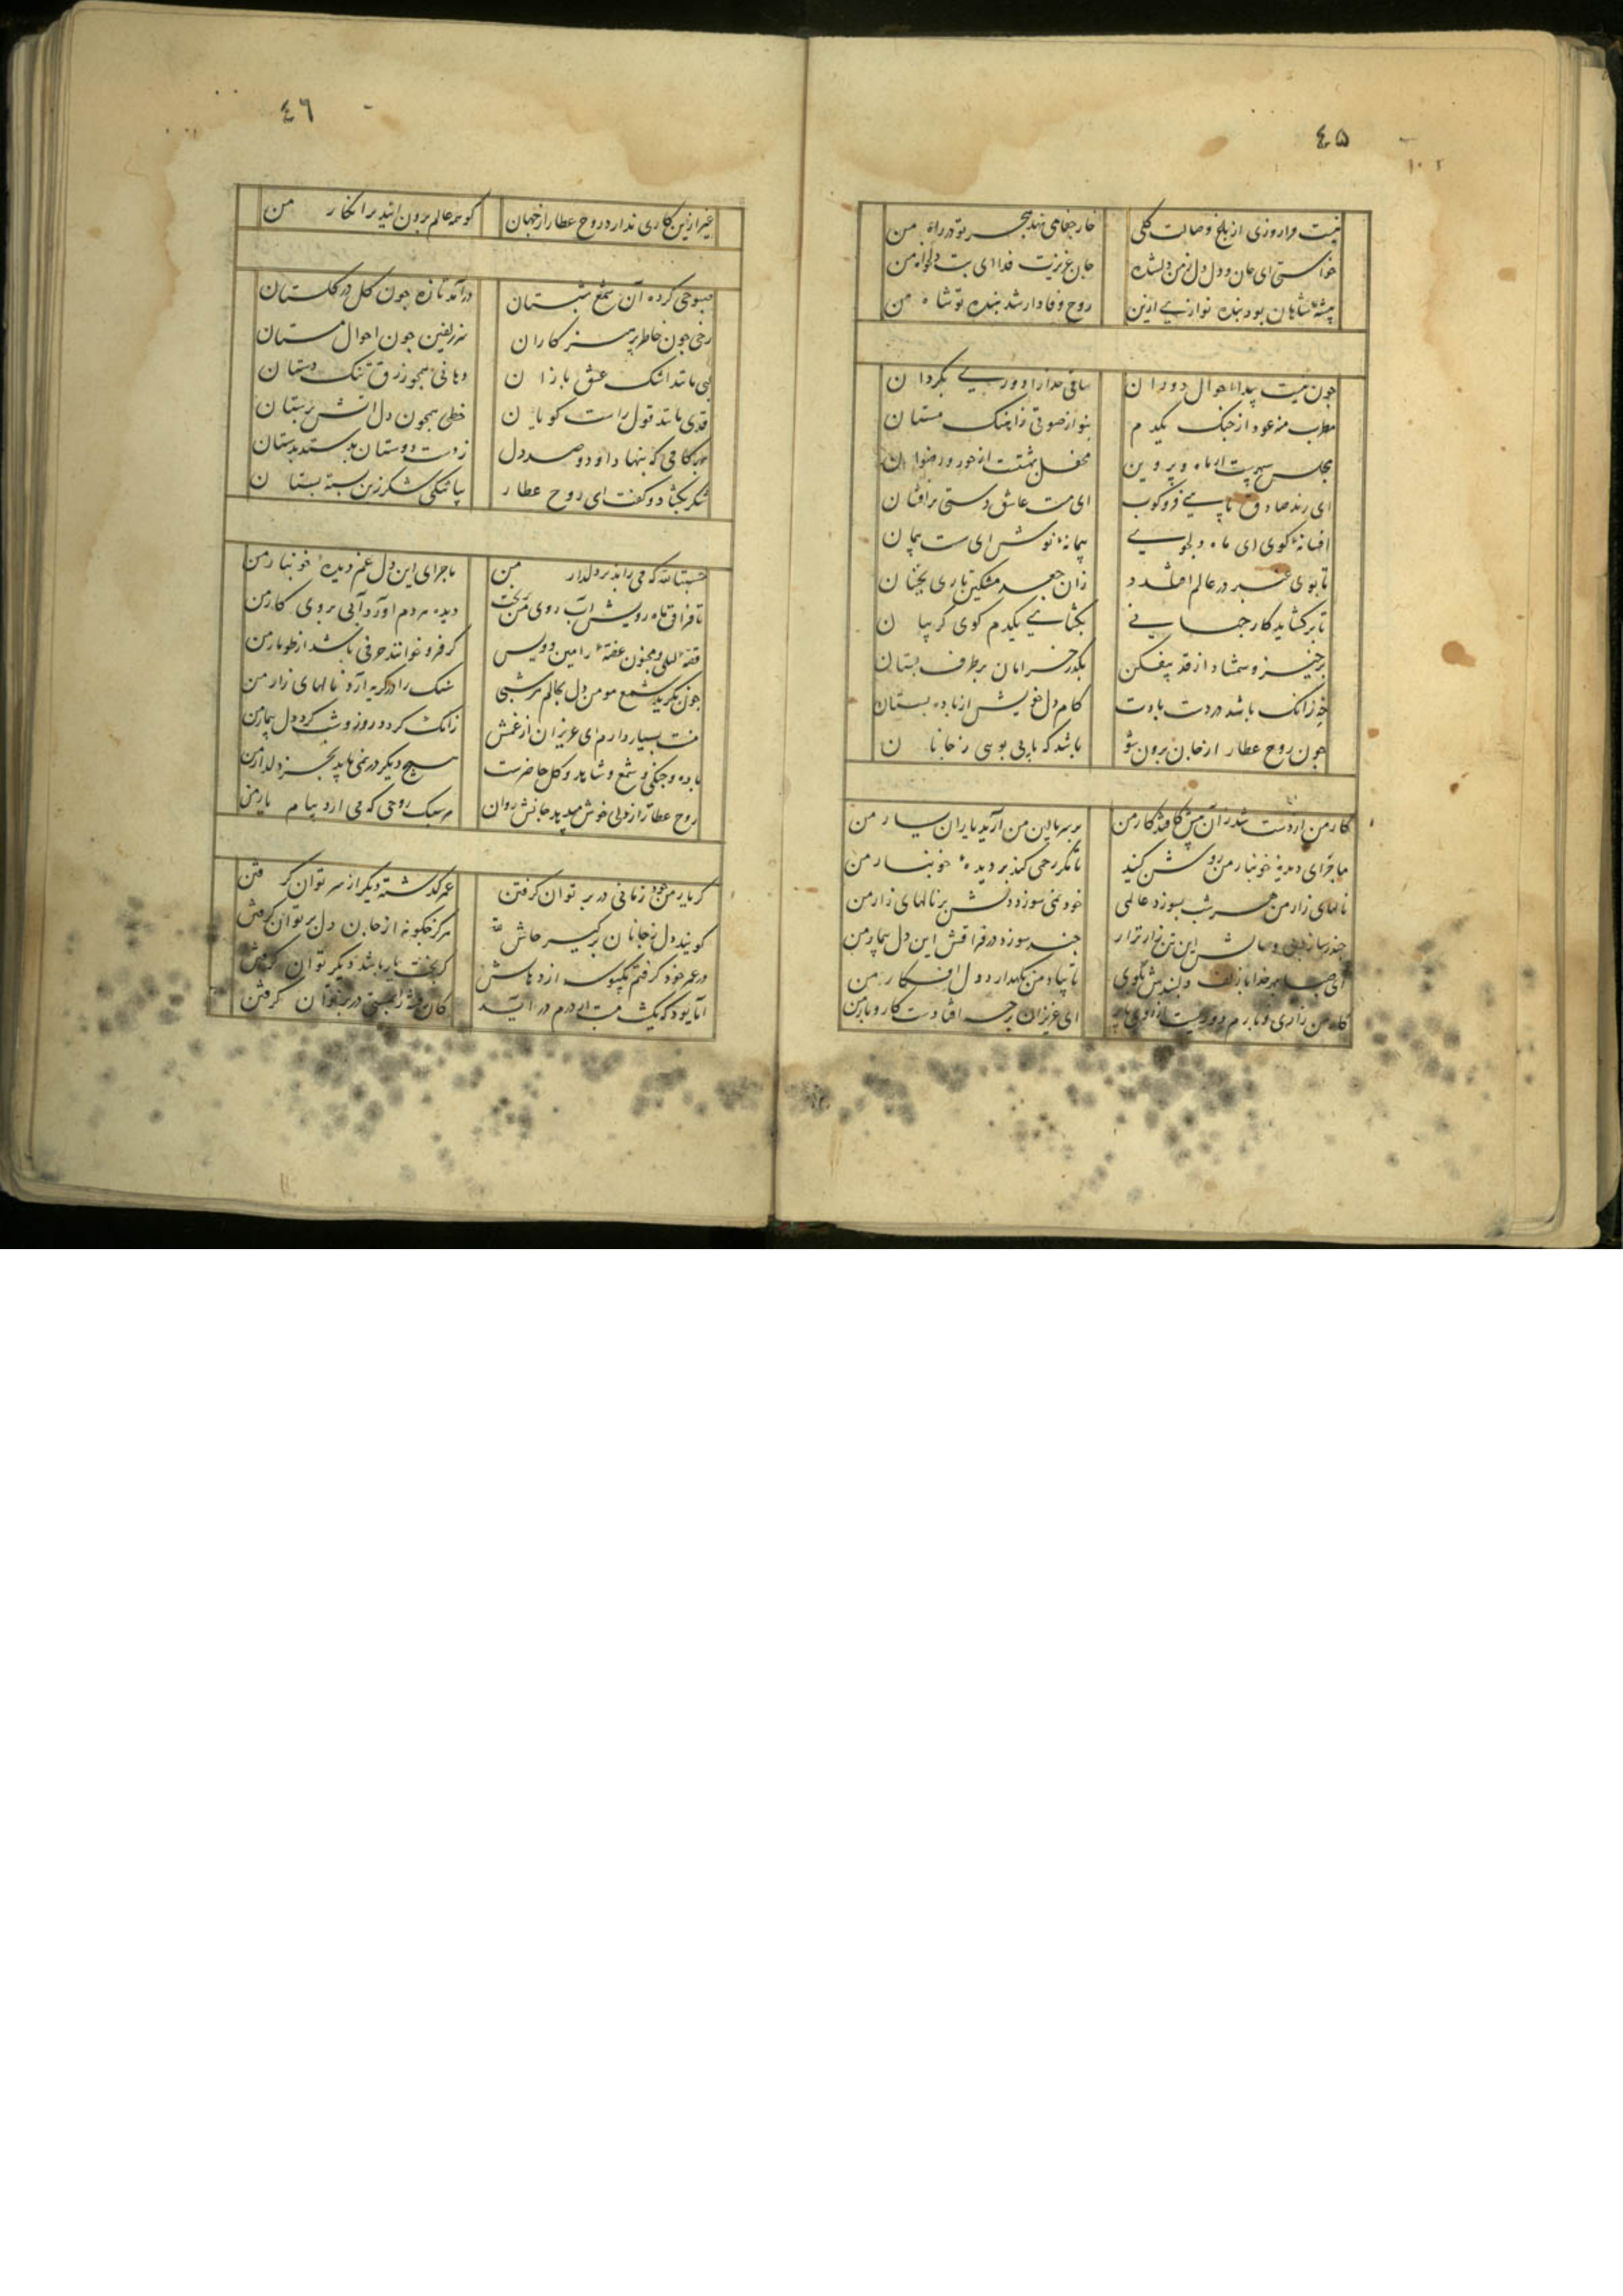 ٤۵
نیست مرا روزی از باغ وصالت کلی
خار جفا می نهد هجر تو در راه من
خواستی ای جان و دل دل ز من دلشده
جان عزیزت فدا ای بت دلخواه من
پیشهٔ شاهان بود بنده نوازی ازین
روح وفادار شد بنده تو شاه من
چون نیست پیدا احوال دوران
ساقی خدا را دوری بگردان
مطرب منه عود از چنگ یکدم
بنواز صوتی ز آهنگ مستان
مجلس سپهرست از ماه و پروین
محفل بهشتست از حور و رضوان
ای رند صادق پایی فروکوب
ای مست عاشق دستی برافشان
افسانه کوی ای ماه دلجوی
پیمانه نوش ای ست پیمان
تا بوی عنبر در عالم افتد
زان جعد مشکین تاری بجنبان
تا برکشاید کار جهانی
بکشای یکدم کوی کریبان
برخیز و شمشاد از قد بیفکن
بگذر خرامان بر طرف بستان
کام دل خویش از باده بستان
چون روح عطار از جان برون شو
باشد که یابی بوسی ز جانان
کار من از دست شد
بر سر بالین من آرید یاران یار من
ماجرای دیده خونبار من روشن کنید
تا مگر رحمی کند بر دیدهٔ خونبار من
نالهای زار من هر شب بسوزد عالمی
خود نمی سوزد دلش بر نالهای زار من
چند سوزد در فراقش این دل بیمار من
ای صبا بهر خدا با زلف دلبندش بگوی
تا نگهدارد دل افکار من
ای عزیزان افتادست کار و بار من
٤٦
غیر ازین کاری ندارد روح عطار از جهان
کو همه عالم برون آیند بر انکار من
صبوحی کرده آن شمع شبستان
درآمد تازه چون کل در کلستان
رخی چون خاطر پرهیزکاران
سر زلفین چون احوال مستان
لبی مانند اشک عشق بازان
دهانی همچو رزق تنک دستان
قدی مانند قول راست کویان
خطی همچون دل آتش پرستان
بهر کامی که بنهاد او دو صد دل
ز دست دوستان بستد بدستان
شکر بکشاد و کفت ای روح عطار
بیا تنکی شکر زین بسته بستان
حسبتا لله که می راند بر دلدار من
ماجرای این دل غم دیدهٔ خونبار من
تا فراق ماه رویش آب روی من بریخت
دیده مردم آورد آبی بروی کار من
قصهٔ لیلی و مجنون غصهٔ رامین و ویس
کر فرو خوانند حرفی باشد از طومار من
چون بگرید شمع مومین دل بحالم هر شبی
سنک را در کریه آرد نالهای زار من
منت بسیار دارم ای عزیزان از غمش
زانک کردد روز و شب کرد دل بیمار من
باده و چنکی و شمع و شاهد و کل حاضرست
هیچ دیگر در نمی باید بجز دلدار من
روح عطار از دلی خوش میدهد جانش روان
هر سبک روحی که می آرد پیام یار من
کر یار من خود زمانی در بر توان کرفتن
عمر کذشته دیگر از سر توان کرفتن
کویند دل ز جانان برگیر حاش لله
هرکز چکونه از جان دل بر توان کرفتن
در عمر خود کرفتم یک بوسه از دهانش
کر بخت یار باشد دیگر توان کرفتن
آیا بود که یک شب مست از درم درآید
کان در بر توان کرفتن